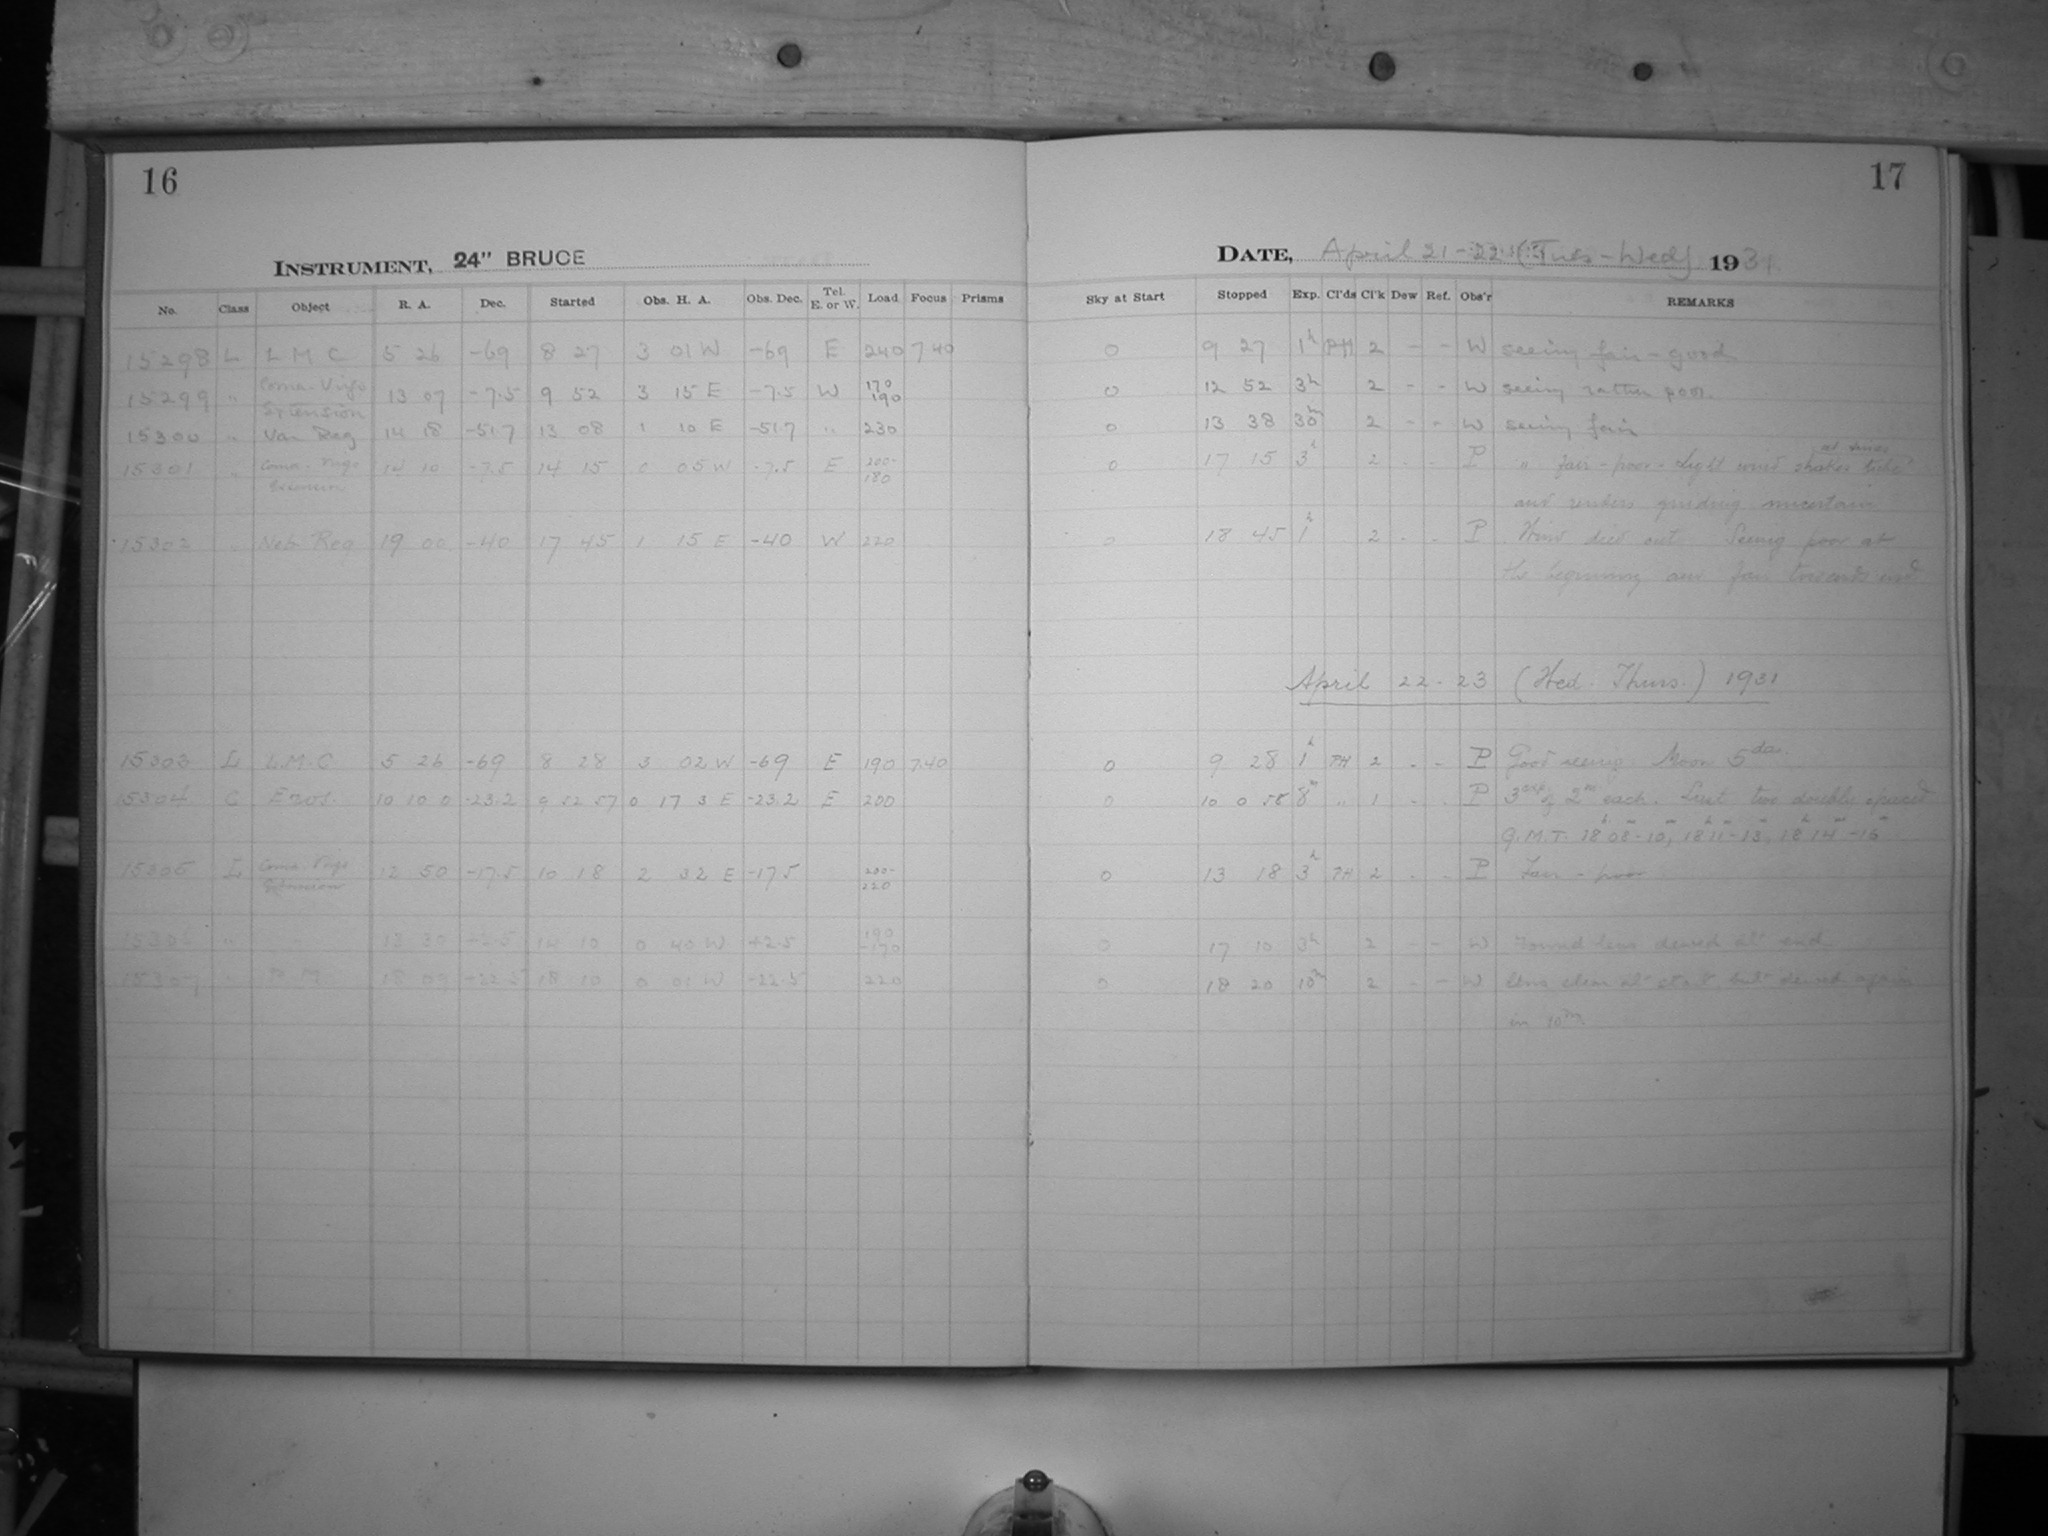 16
17
INSTRUMENT, 24" BRUCE
DATE, April 21-22 (Tues-Wed) 1931.
No. Class Object R. A. Dec. Started Obs. H. A. Obs. Dec. Tel. E. or W. Load Focus Prisms Sky at Start Stopped Exp. Cl'ds Cl'k Dew Ref. Obs'r REMARKS
15298 L L M C 5 26 -69 8 27 3 01 W -69 E 240 7.40 0 9 27 1h PH 2 - - W seeing fair - good
15299 " Coma-Virgo Extension 13 07 -7.5 9 52 3 15 E -7.5 W 170 190 0 12 52 3h 2 - - W seeing rather poor.
15300 " Var Reg 14 18 -51.7 13 08 1 10 E -51.7 " 230 0 13 38 30m 2 - - W seeing fair
15301 " Coma-Virgo Extension 14 10 -7.5 14 15 0 05 W -7.5 E 200- 180 0 17 15 3h 2 - - P " fair - poor - Light wind shakes tube at times
and renders guiding uncertain
15302 " Neb Reg 19 00 -40 17 45 1 15 E -40 W 220 0 18 45 1h 2 - - P Wind died out. Seeing poor at
the beginning and fair towards end
April 22-23 (Wed. Thurs.) 1931
15303 L L.M.C 5 26 -69 8 28 3 02 W -69 E 190 7.40 0 9 28 1h PH 2 - - P Good seeing. Moon 5 das.
15304 C Eros. 10 10 0 -23.2 9 52 57 0 17 3 E -23.2 E 200 0 10 0 58 8m " 1 - - P 3 exp of 2m each. Last two doubly spaced
G.M.T. 18h 08m-10m, 18h 11m-13m, 18h 14m-16m
15305 L Coma-Virgo Extension 12 50 -17.5 10 18 2 32 E -17.5 200- 220 0 13 18 3h PH 2 - - P Fair - poor
15306 " " 13 30 +2.5 14 10 0 40 W +2.5 190 -170 0 17 10 3h 2 - - W Found lens dewed at end
15307 " 18 09 -22.5 18 10 0 01 W -22.5 220 0 18 20 10m 2 - - W Lens clean at start but dewed again
in 10m.